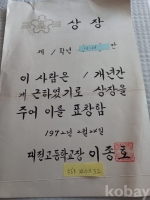 상장
제 1 학년
이 사람은 1 개년간
개근하였기로 상장을
주어 이를 표창함
1972년 2월
대전고등학교장 이종
kobay